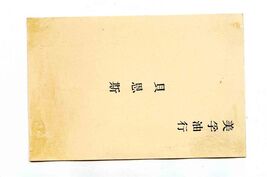 美孚油行
貝恩斯